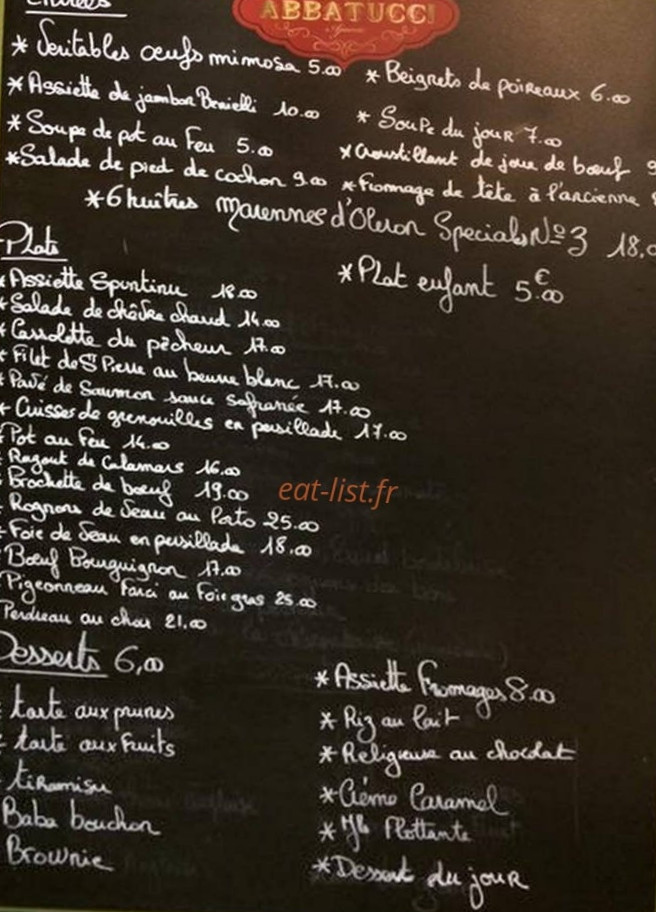 Entrées
ABBATUCCI
* Veritables œufs mimosa 5.00
* Beignets de poireaux 6.00
* Assiette de jambon Benielli 10.00
* Soupe du jour 7.00
* Soupe de pot au Feu 5.00
* Croustillant de joue de bœuf 9
* Salade de pied de cochon 9.00
* Fromage de tête à l'ancienne
* 6 huitres Marennes d'Oleron Specials N°3 18,0
Plats
* Plat enfant 5.€00
* Assiette Spuntinu 18.00
* Salade de chèvre chaud 14.00
* Cassolette du pêcheur 17.00
* Filet de St Pierre au beurre blanc 17.00
* Pavé de Saumon sauce Safranée 17.00
* Cuisses de grenouilles en persillade 17.00
Pot au Feu 14.00
Ragout de Calamars 16.00
Brochette de bœuf 19.00
eat-list.fr
Rognons de Veau au Porto 25.00
Foie de Veau en persillade 18.00
Bœuf Bourguignon 17.00
Pigeonneau Farci au Foie gras 25.00
Perdreau au chou 21,00
Desserts 6,00
* Assiette Fromages 8.00
tarte aux prunes
* Riz au lait
tarte aux fruits
* Religieuse au chocolat
tiramisu
* Crème Caramel
Baba bouchon
* Ile Flottante
Brownie
* Dessert du jour